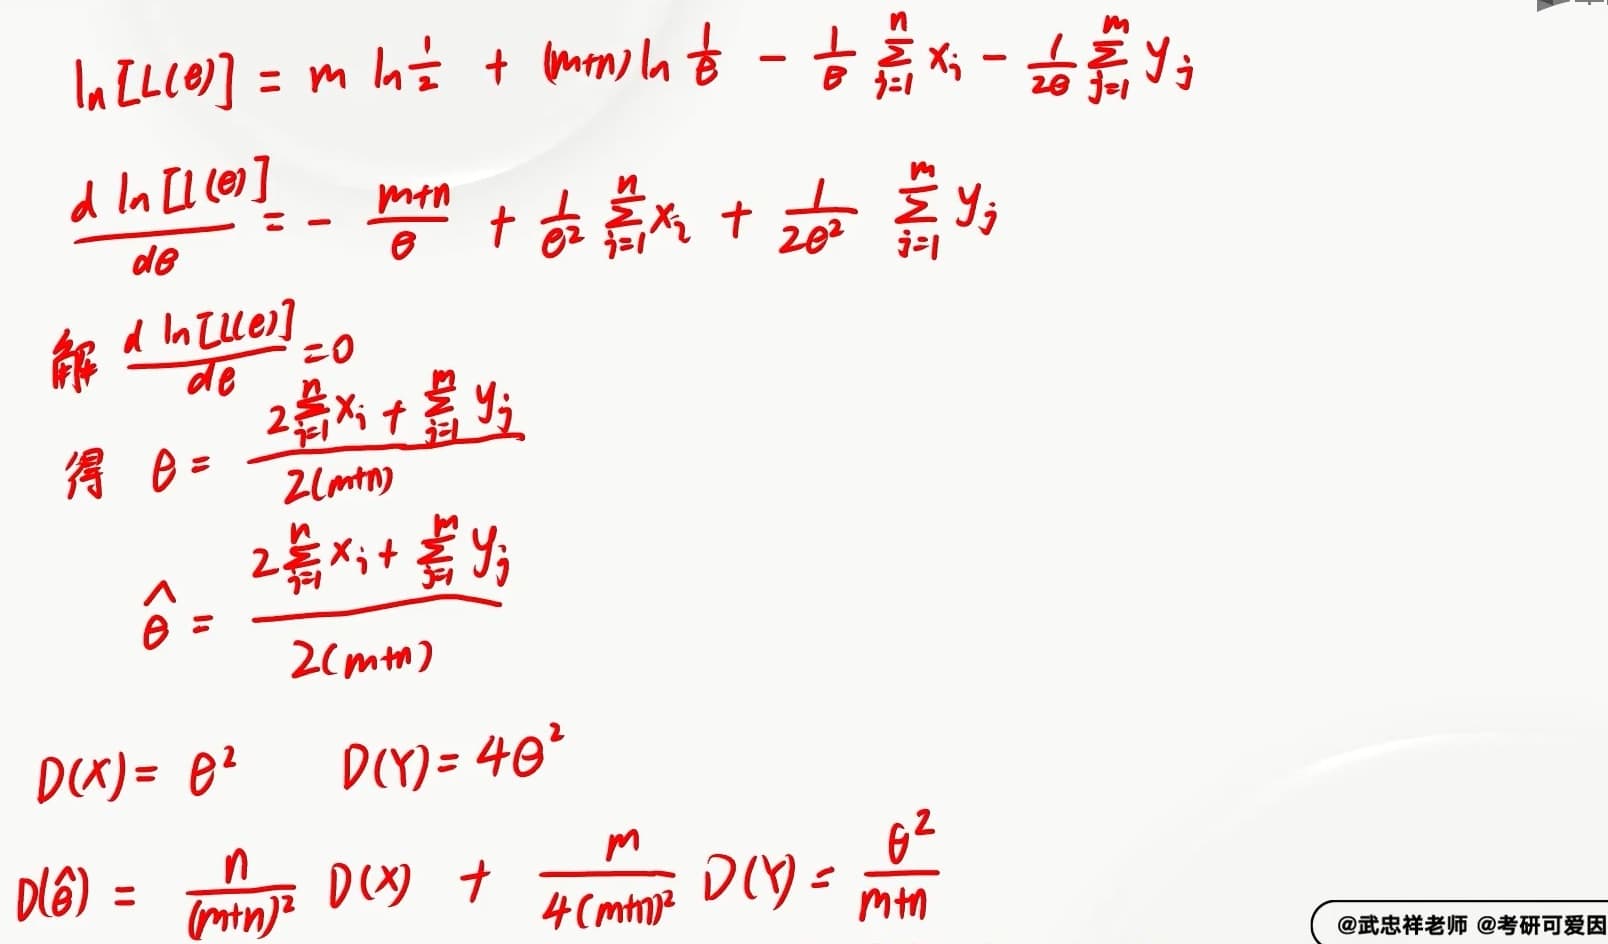 ln[L(θ)] = m ln 1/2 + (m+n) ln 1/θ - 1/θ ∑_{i=1}^{n} x_i - 1/(2θ) ∑_{j=1}^{m} y_j
d ln[L(θ)]/dθ = - (m+n)/θ + 1/θ² ∑_{i=1}^{n} x_i + 1/(2θ²) ∑_{j=1}^{m} y_j
解 d ln[L(θ)]/dθ = 0
得 θ = (2∑_{i=1}^{n} x_i + ∑_{j=1}^{m} y_j)/(2(m+n))
θ̂ = (2∑_{i=1}^{n} x_i + ∑_{j=1}^{m} y_j)/(2(m+n))
D(X) = θ² D(Y) = 4θ²
D(θ̂) = n/(m+n)² D(X) + m/(4(m+n)²) D(Y) = θ²/(m+n)
@武忠祥老师 @考研可爱因